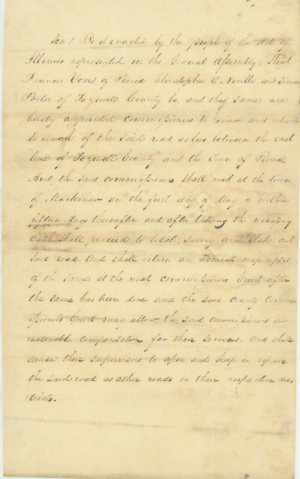 Sec 1 Be it enacted by the people of the State of
Illinois represented in the General Assembly, That
Francis Voris of Peoria Christopher C. and
Porter of Tazewell County be, and they hereby are
hereby appointed commissioners to review and relocate
so much of the said road as lies between the east
line of Tazewell County and the Town of Peoria
And the said commissioners shall meet at the town
of Mackinaw on the first day of May or within
fifteen days thereafter and after taking the necessary
oath shall proceed to locate, survey and stake out
said road. And shall return an accurate map
of the same at the next commissioners Court after
the same has been done and the said county
Court may allow the said commissioners a
reasonable compensation for their services. And shall
cause their supervisors to open and keep in repair
the said road as other roads in their respective